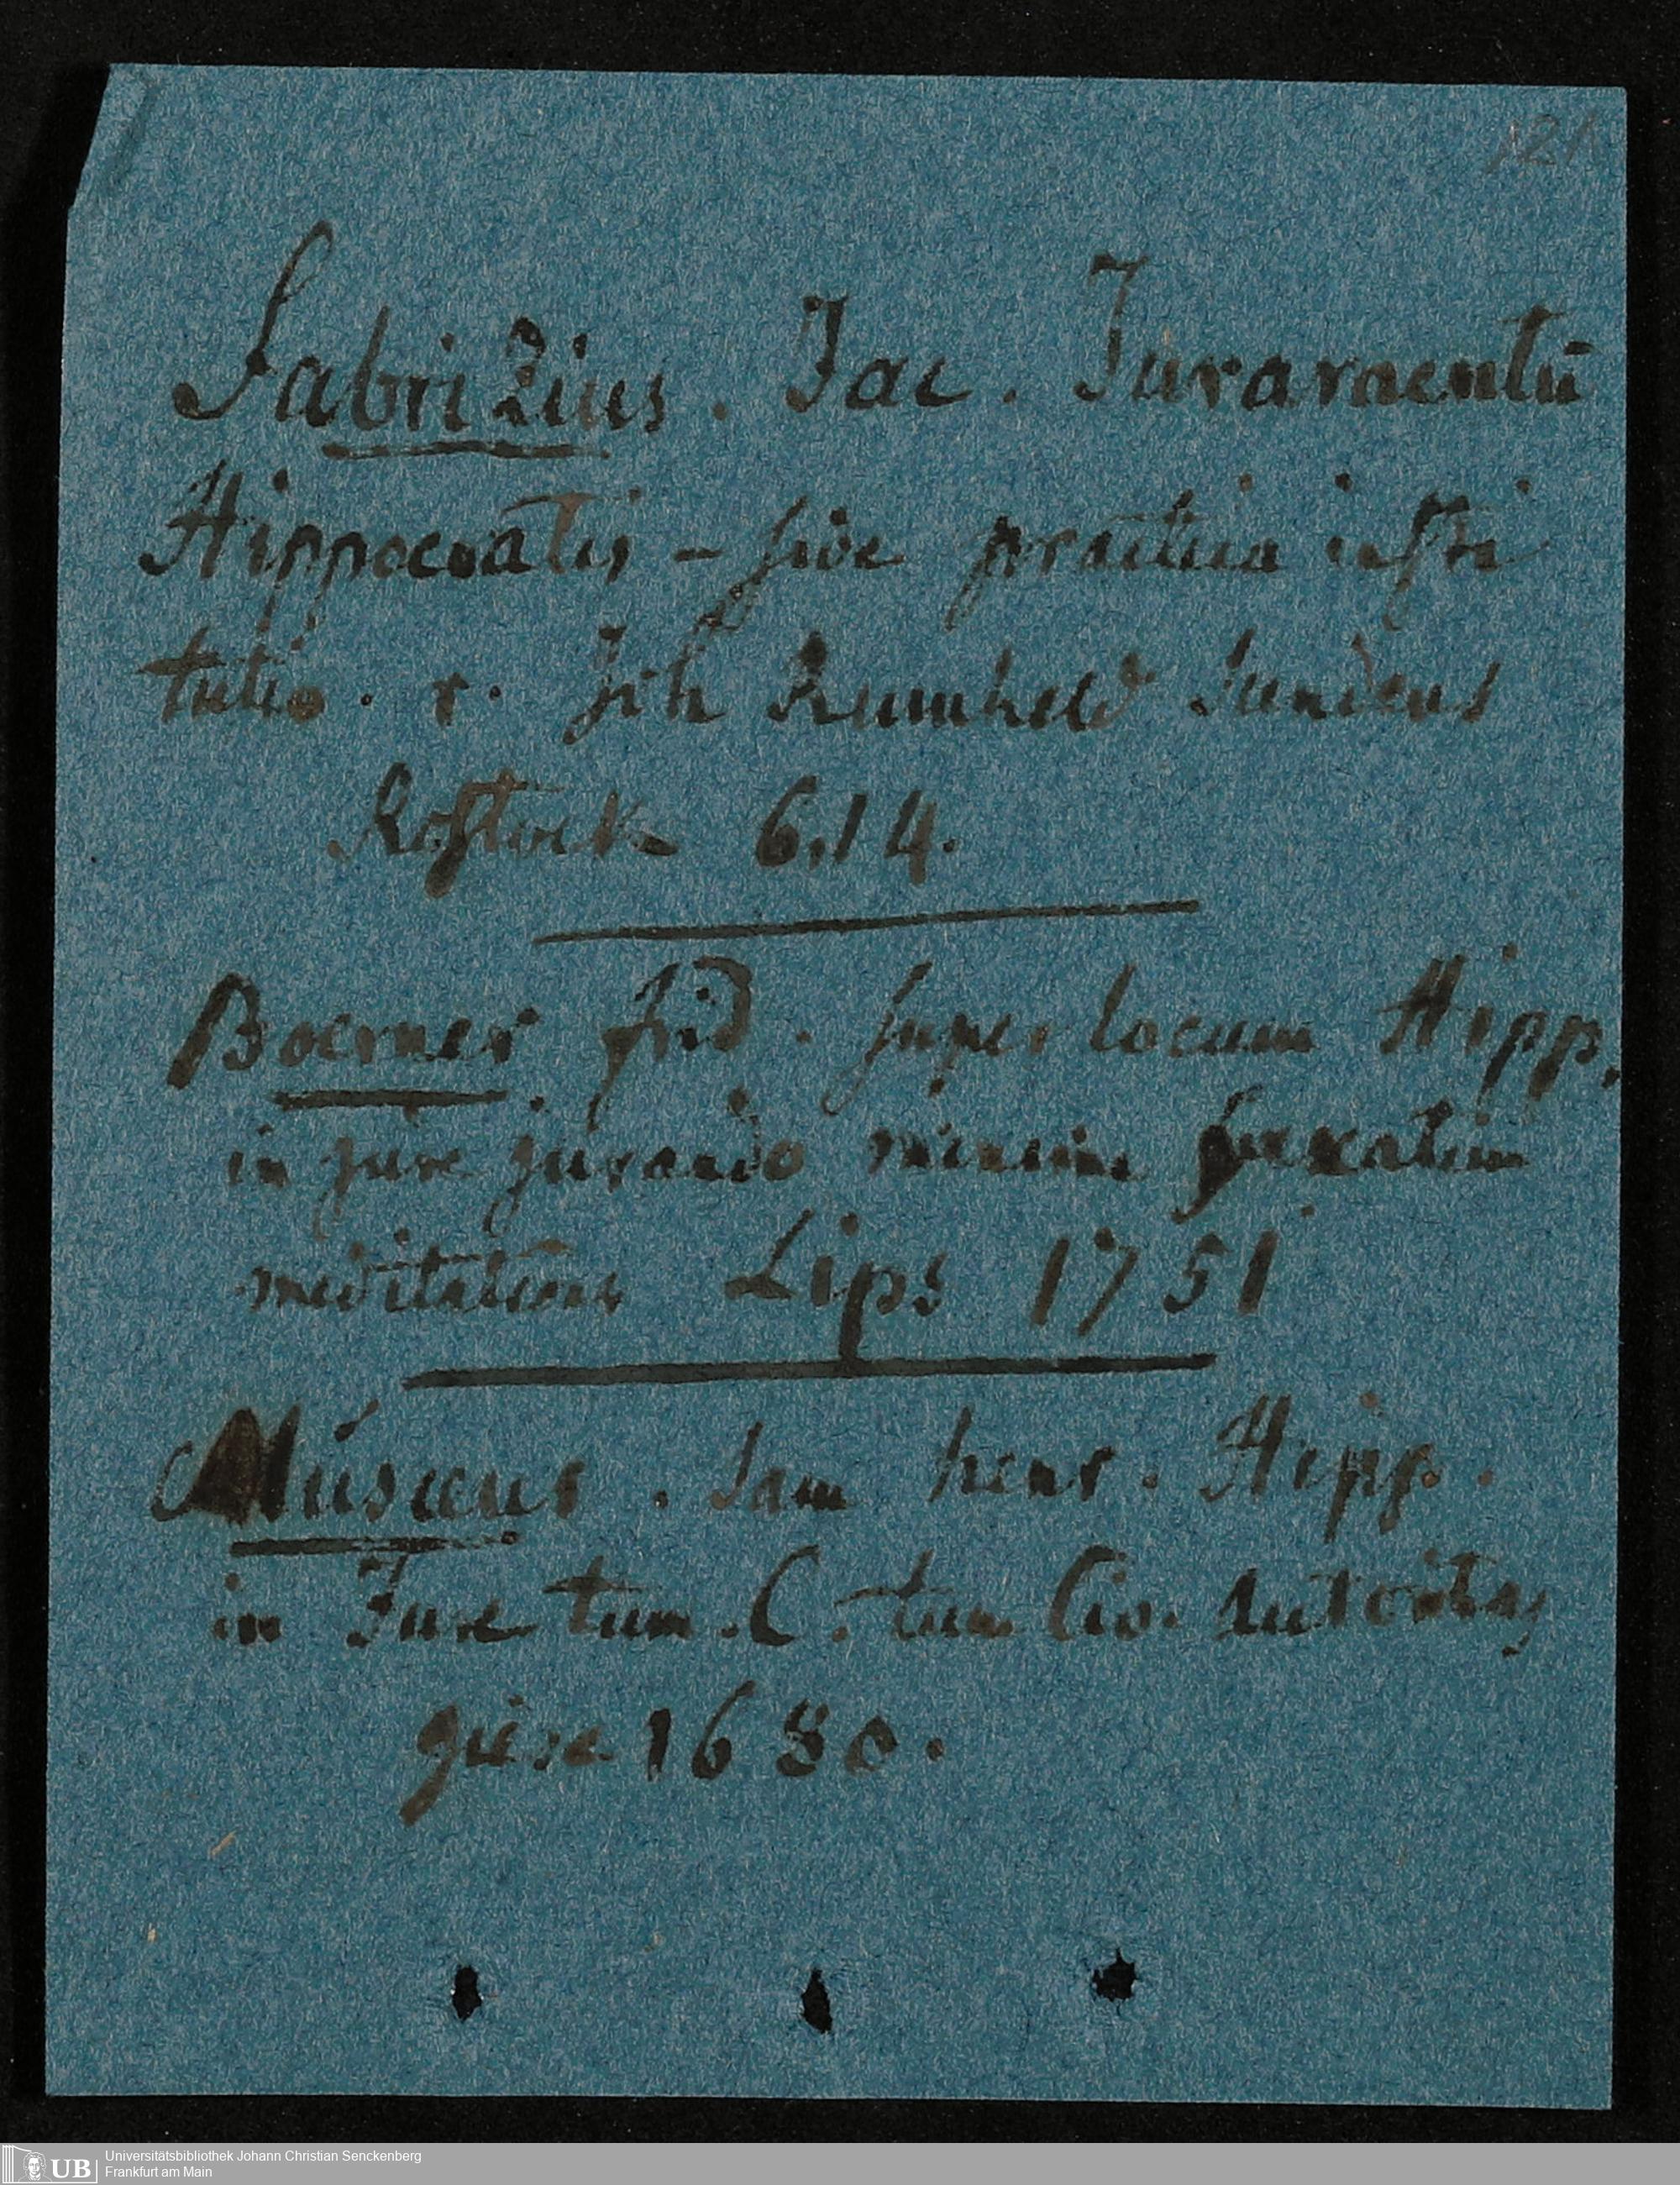 121
Fabrizius. Jac. Juramentū
Hippocratis – sive practica insti
tutio. r. Joh Rumheld Sundens
Rostock 614.
Boerner frid. super locum Hipp.
in jure jurando minime
meditationes Lips 1751
Musaeus. Sam henr. Hipp.
in Jure tum. C. tum Civ. Autoritas
giese 1680.
UB
Universitätsbibliothek Johann Christian Senckenberg
Frankfurt am Main